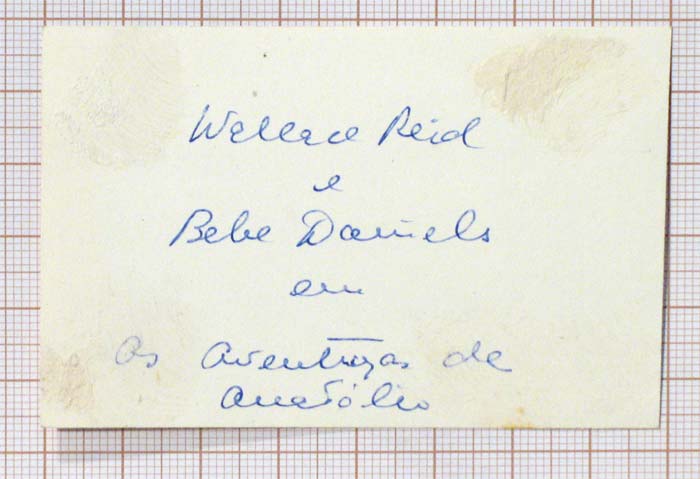 Wallace Reid
e
Bebe Daniels
em
As aventuras de
Anatólio